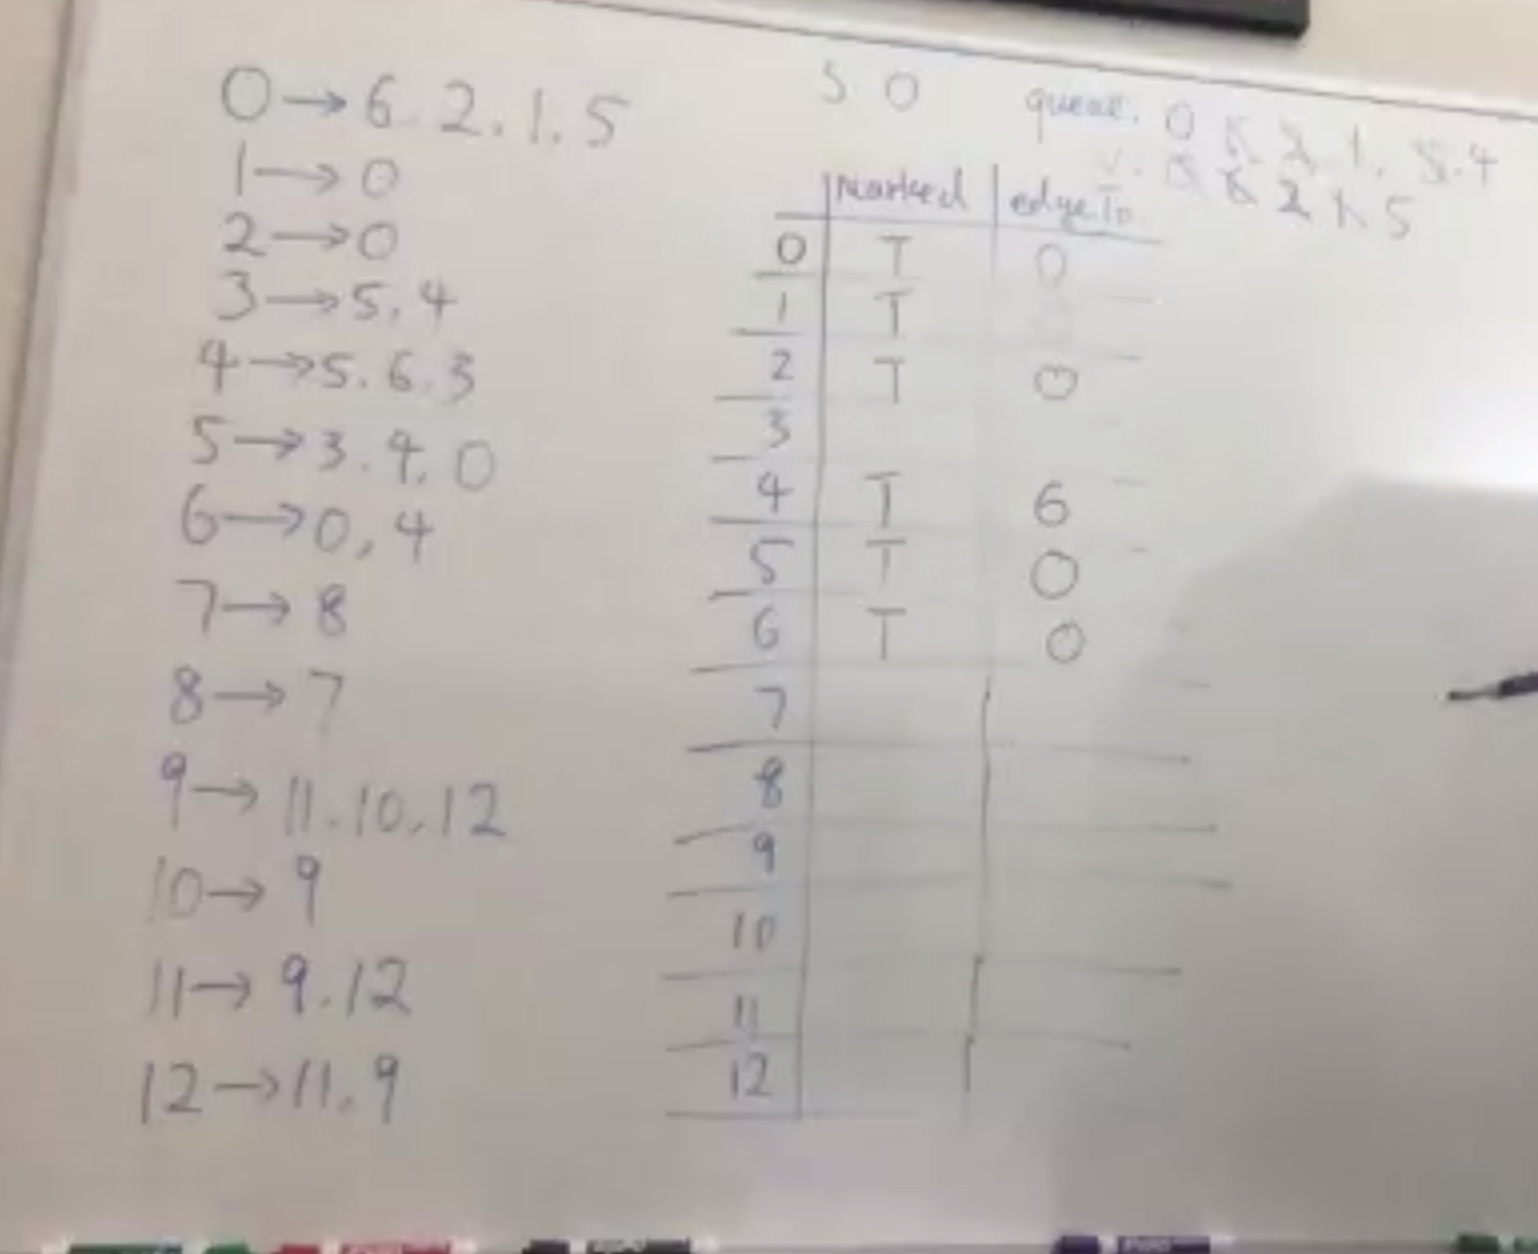 0→6.2.1.5
1→0
2→0
3→5,4
4→5.6.3
5→3.4.0
6→0,4
7→8
8→7
9→11.10,12
10→9
11→9.12
12→11.9
S 0
queue. 0 2 1. 5.4
2 1 5
marked edgeTo
0 T 0
1 T
2 T 0
3
4 T 6
5 T 0
6 T 0
7
8
9
10
11
12